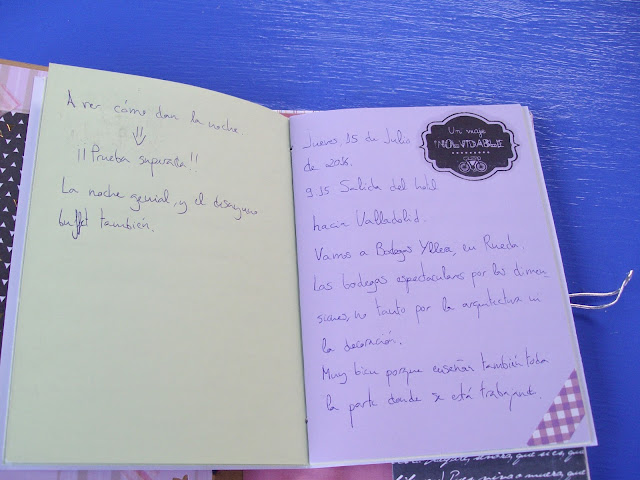 A ver cómo dan la noche.
¡¡Prueba superada!!
La noche genial, y el desayuno
buffet también.
Jueves, 15 de Julio
de 2016.
9 35 Salida del hotel
hacia Valladolid.
Vamos a Bodegas Yllera, en Rueda.
Las bodegas espectaculares por las dimen
siones, no tanto por la arquitectura ni
la decoración.
Muy bien porque enseñan también toda
la parte donde se está trabajando.
Un viaje
INOLVIDABLE